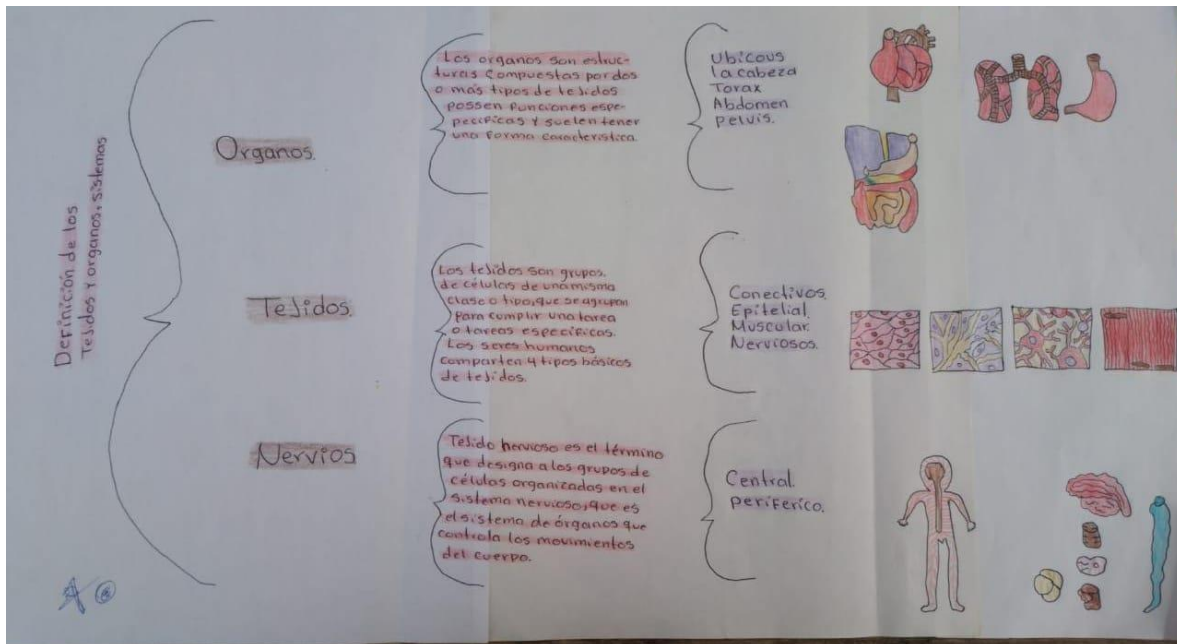 Definición de los
Tejidos y organos, sistemas
Organos.
Los organos son estruc-
turas compuestas por dos
o más tipos de tejidos
possen funciones espe-
pecificas y suelen tener
una forma caracteristica.
Ubicous
la cabeza
Torax
Abdomen
pelvis.
Tejidos
Los tejidos son grupos.
de células de una misma
clase o tipo, que se agrupan
para cumplir una tarea
o tareas específicas.
Los seres humanos
comparten 4 tipos básicos
de tejidos.
Conectivos.
Epitelial.
Muscular.
Nerviosos.
Nervios
Tejido nervioso es el término
que designa a los grupos de
células organizadas en el
sistema nervioso, que es
el sistema de órganos que
controla los movimientos
del cuerpo.
Central.
periferico.